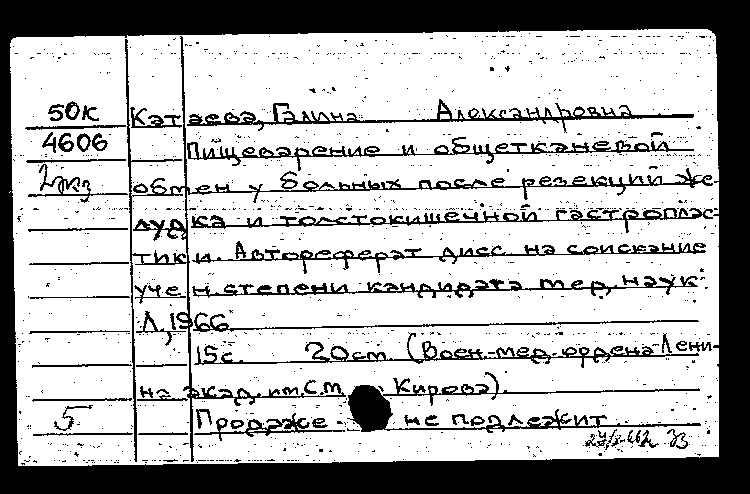 50К Катаева, Галина Александровна
4606 Пищеварение и общетканевой
2 экз обмен у больных после резекций же-
лудка и толстокишечной гастроплас-
тики. Автореферат дисс. на соискание
учен. степени кандидата мед. наук.
Л., 1966
15с. 20см (Воен.-мед. ордена Лени-
на акад. им. С.М. Кирова).
5 Продаже - не подлежит